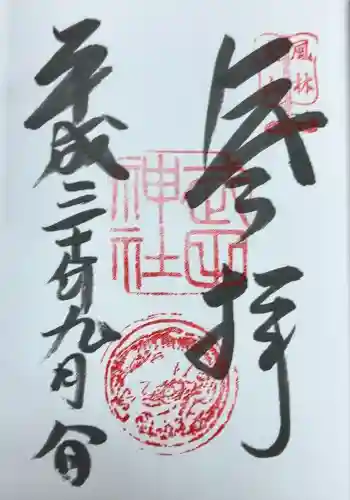 風林
参拝
武田
神社
平成三十年九月日